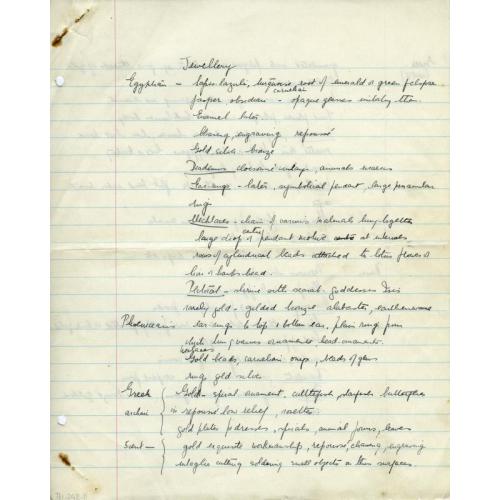 Jewellery
Egyptian - Lapis lazuli, turquoise, root of emerald or green felspar
carnelian
Jasper obsidian - opaque glasses imitating them
Enamel later
Chasing, engraving, repoussé
Gold silver bronze
Diadems cloisonné inlays, animals
Ear-rings - later, symbolical pendant, large penannular
rings
Necklaces - chain of various materials hung together
large drop or pendant motive at intervals
rows of cylindrical beads attached to lotus flower or
lion or hawks head.
Pectoral - shrine with scarab goddesses Isis
rarely gold - gilded bronze alabaster, earthenware
Phoenicians ear-rings to top & bottom ear, plain ring from
which hung various ornaments head ornaments.
necklaces
Gold beads, carnelian onyx, beads of glass
rings gold silver
Greek Gold - spiral ornament, cuttlefish, starfish butterflies
archaic in repoussé low relief, rosettes
gold plates, spirals, animal forms, leaves
gold exquisite workmanship, repoussé, chasing, engraving
intaglio cutting soldering small objects on thin surfaces.